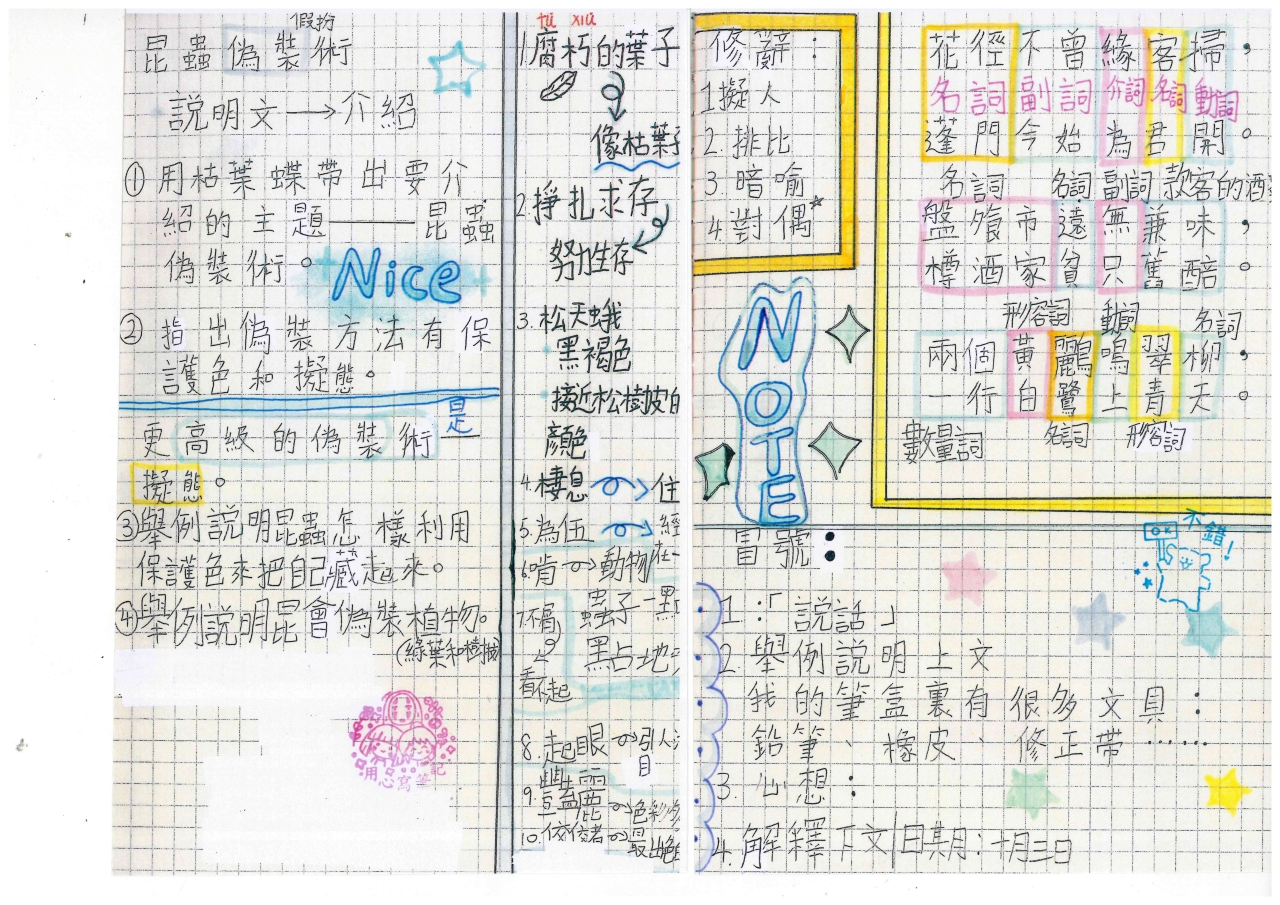 假扮
昆蟲偽裝術
説明文→介紹
①用枯葉蝶帶出要介
紹的主題——昆蟲
偽裝術。
Nice
②指出偽裝方法有保
護色和擬態。
更高級的偽裝術是—
擬態。
③舉例説明昆蟲怎樣利用
保護色來把自己藏起來。
④舉例説明昆會偽裝植物。
用心寫筆記
fǔ xiǔ
1.腐朽的葉子
像枯葉子
2.掙扎求存
努力生存
3.松天蛾
黑褐色
接近松樹皮的
顏色
4.棲息→住
5.為伍→經
在一
6.啃→動物
7.不屑
蟲子一點
黑占地
看不起
8.起眼→引人
目
9.豔麗→色彩
10.佼佼者→最出色
修辭：
1.擬人
2.排比
3.暗喻
4.對偶
NOTE
花徑不曾緣客掃，
名詞 副詞 介詞 名詞 動詞
蓬門今始為君開。
名詞 名詞 副詞 款客的酒
盤飧市遠無兼味，
樽酒家貧只舊醅。
形容詞 動詞 名詞
兩個黃鸝鳴翠柳，
一行白鷺上青天。
數量詞 名詞 形容詞
冒號：
不錯！
OK
1.：「説話」
2.舉例説明上文
我的筆盒裏有很多文具：
鉛筆、橡皮、修正帶……
3.心想：
4.解釋下文/日期：十月三日